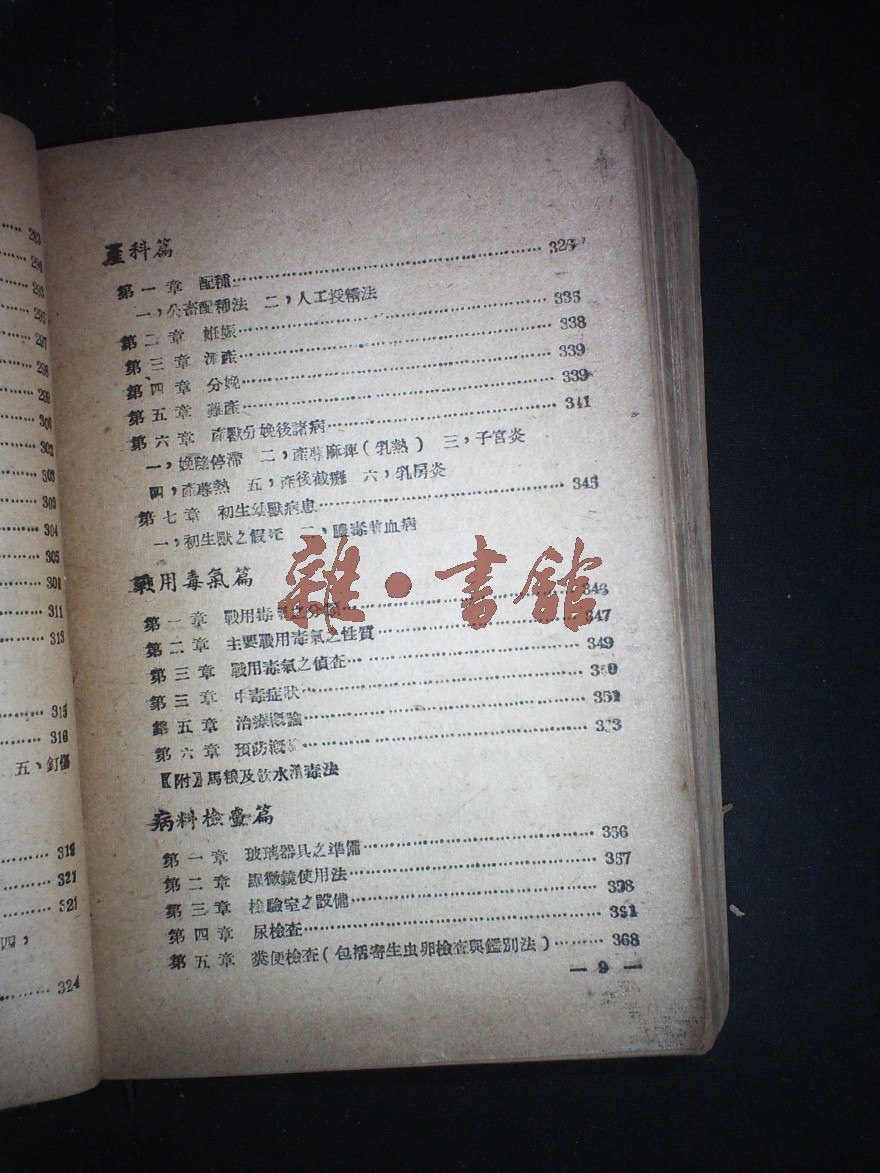 283
290
293
296
297
298
299
300
302
303
303
304
305
301
311
313
315
316
五、釘傷
318
321
321
四，
324
產科篇
第一章 配種 326
一，公畜配種法 二，人工授精法
第二章 妊娠 335
第三章 流產 338
第四章 分娩 339
第五章 難產 339
第六章 產獸分娩後諸病 341
一，娩隨停滯 二，產蓐麻痺(乳熱) 三，子宮炎
四，產蓐熱 五，產後截癱 六，乳房炎
第七章 初生幼獸病患 345
一，初生獸之假死 二，膿毒敗血病
戰用毒氣篇
第一章 戰用毒氣之分類 346
第二章 主要戰用毒氣之性質 347
第三章 戰用毒氣之偵查 349
第三章 中毒症狀 350
第五章 治療概論 352
第六章 預防概 353
【附】馬糧及飲水消毒法
病料檢查篇
第一章 玻璃器具之準備 356
第二章 顯微鏡使用法 357
第三章 檢驗室之設備 358
第四章 尿檢查 361
第五章 糞便檢查(包括寄生虫卵檢查與鑑別法) 368
— 9 —
雜·書館